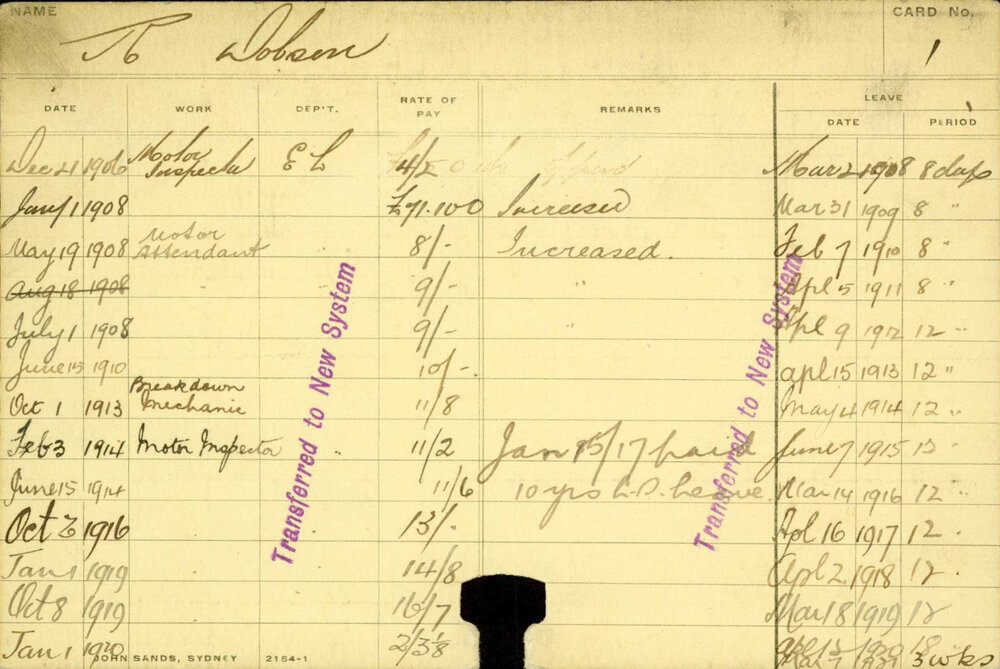 NAME
CARD No.
Dobson
1
DATE WORK DEP'T. RATE OF PAY REMARKS LEAVE
DATE PERIOD
Dec 21 1906 Motor Inspector E L Mar 2 1908 8 days
Jany 1 1908 Increased Mar 31 1909 8 "
May 19 1908 Motor Attendant 8/- Increased. Feb 7 1910 8 "
Aug 18 1908 9/- " Apl 5 1911 8 "
July 1 1908 9/- " Apl 9 1912 12 "
June 15 1910 10/- Apl 15 1913 12 "
Oct 1 1913 Breakdown Mechanic 11/8 May 4 1914 12 "
Feb 3 1914 Motor Inspector 11/2 Jan 15/17 paid June 7 1915 12
June 15 1914 11/6 10 yrs L.S. Leave. Mar 14 1916 12 "
Oct 3 1916 13/- Apl 16 1917 12 "
Jan 1 1919 14/8 Apl 2 1918 12 "
Oct 8 1919 16/7 Mar 18 1919 12
Jan 1 1920 1920 18
3 wks
JOHN SANDS, SYDNEY 2154-1
Transferred to New System
Transferred to New System